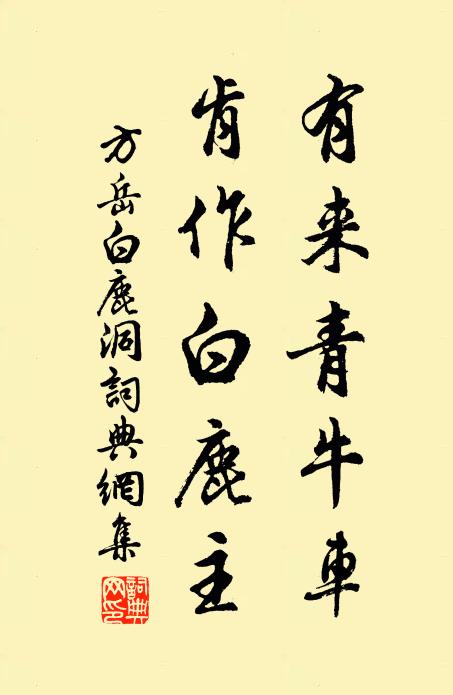 有来青牛車
肯作白鹿主
方岳白鹿洞詞典網集
詞典网印